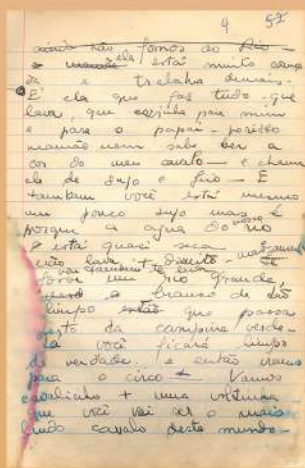 4 52
ainda não fomos ao Rio –
e mamãe ela está muito cansa
da e trabalha demais.
É ela que faz tudo – que
lava, que cozinha para mim
e para o papai – porisso
mamãe nem sabe ver a
cor do meu cavalo – e chama
ele de sujo e feio – E
tambem você está mesmo
um pouco sujo mas é
porque a agua do nosso rio
está quasi seca
não lava direito – mas
vou tambem te levar
um rio grande,
e branco de tão
limpo que passa
perto da campina verde –
lá você ficará limpo
de verdade. e então vamos
para o circo – Vamos
cavalinho + uma voltinha
que você vai ser o mais
lindo cavalo deste mundo –